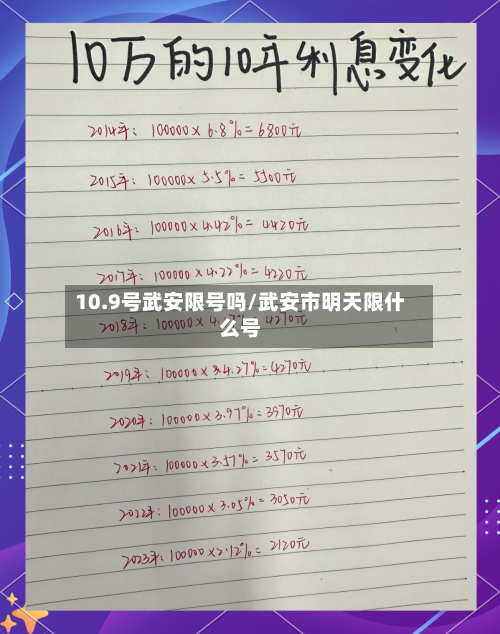 10万的10年利息变化
2014年: 100000×6.8%=6800元
2015年: 100000×5.5%=5500元
2016年: 100000×4.42%=4420元
2017年: 100000×4.22%=4220元
10.9号武安限号吗/武安市明天限什
么号
2018年: 100000×4. 4270元
2019年: 100000×4.27%=4270元
2020年: 100000×3.97%=3970元
2021年: 100000×3.57%=3570元
2022年: 100000×3.05%=3050元
2023年: 100000×2.12%=2120元